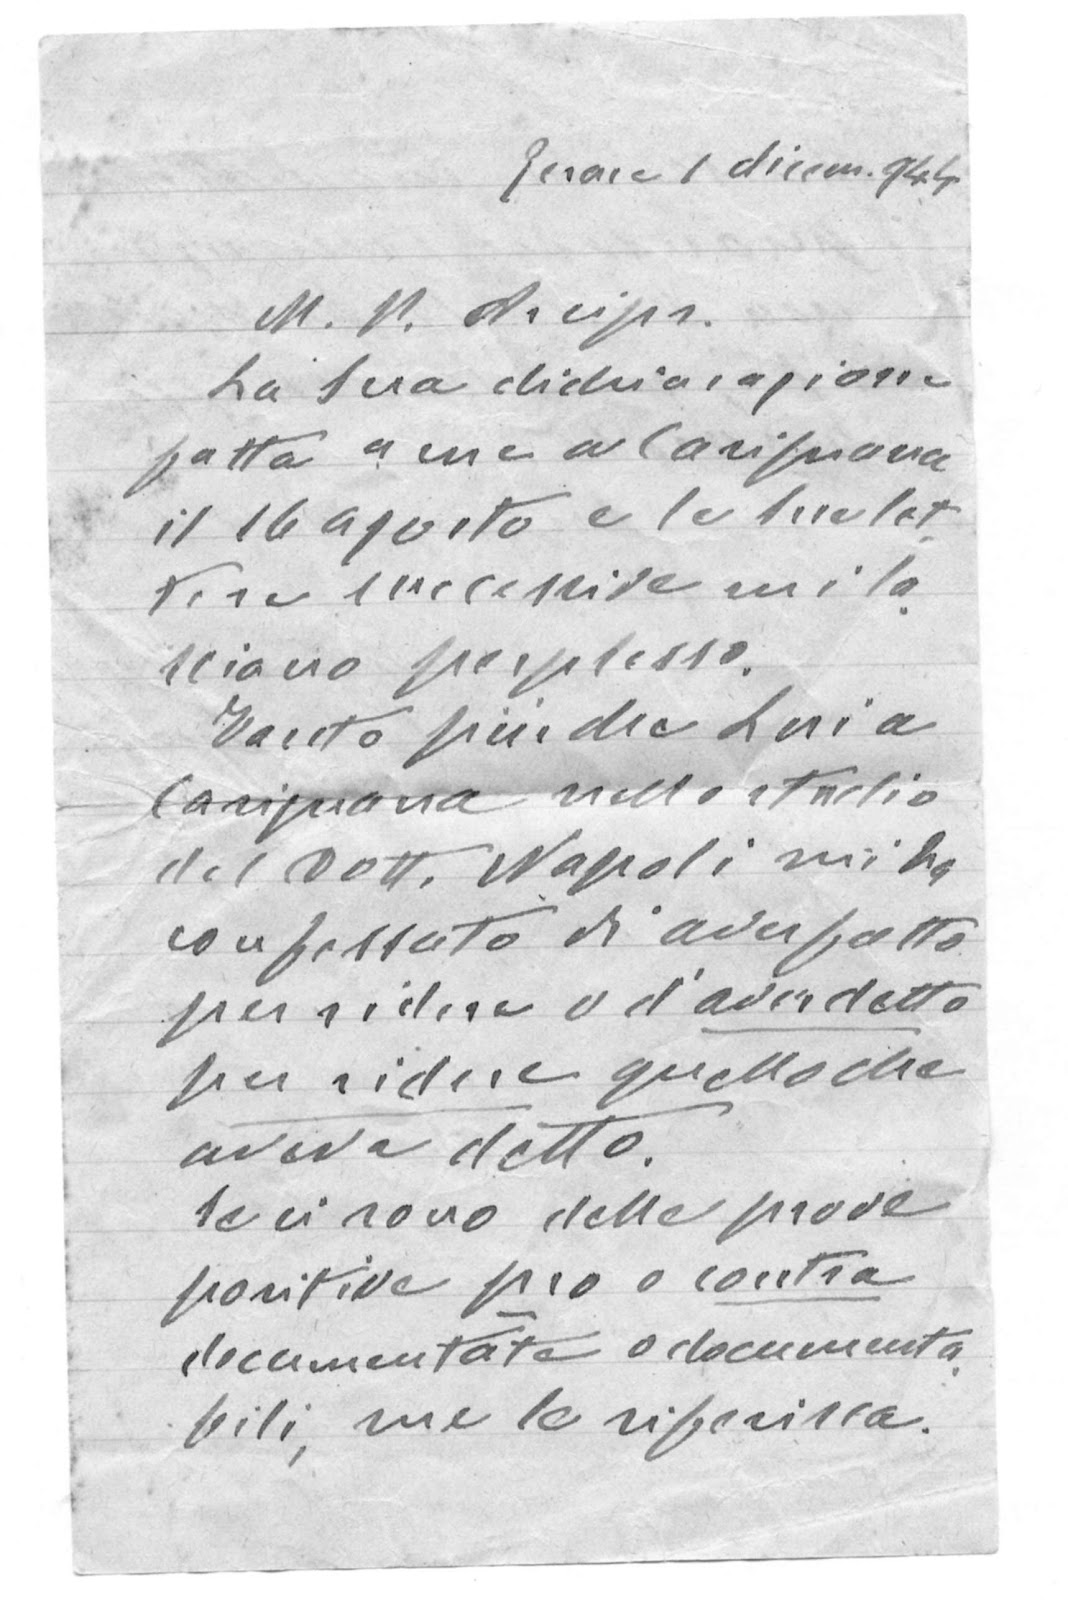 Gerace 1 dicem. 944
M. R. Arcipr.
La Sua dichiarazione
fatta a me a Carignana
il 16 agosto e le sue let.
tere successive mi la.
sciano perplesso.
Tanto più che Lui a
Carignana nello studio
del Dott. Napoli mi ha
confessato di aver fatto
per ridere o d'aver detto
per ridere quello che
aveva detto.
Se ci sono delle prove
positive pro o contra
documentate o documenta.
bili, me le riferisca.